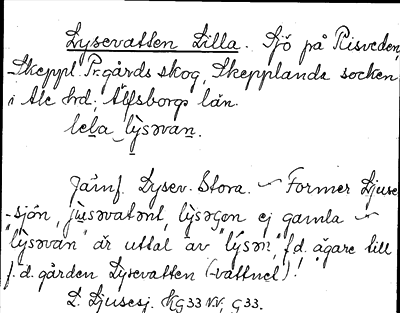 Lysevatten Lilla. Sjö på Risveden,
Skeppl. Pr.gårds skog, Skepplanda socken
i Ale hrd; Älfsborgs län.
lela lỳsəvan.
Jämf. Lysev. Stora. ~ Former Ljuse
-sjön, jùsəvatənt, lỳsəgən ej gamla ~
"lỳsəvan" är uttal av "lýsən", f.d. ägare till
f.d. gården Lysevatten (-vattnet).
L. Ljusesj. KG33 NV, G33.